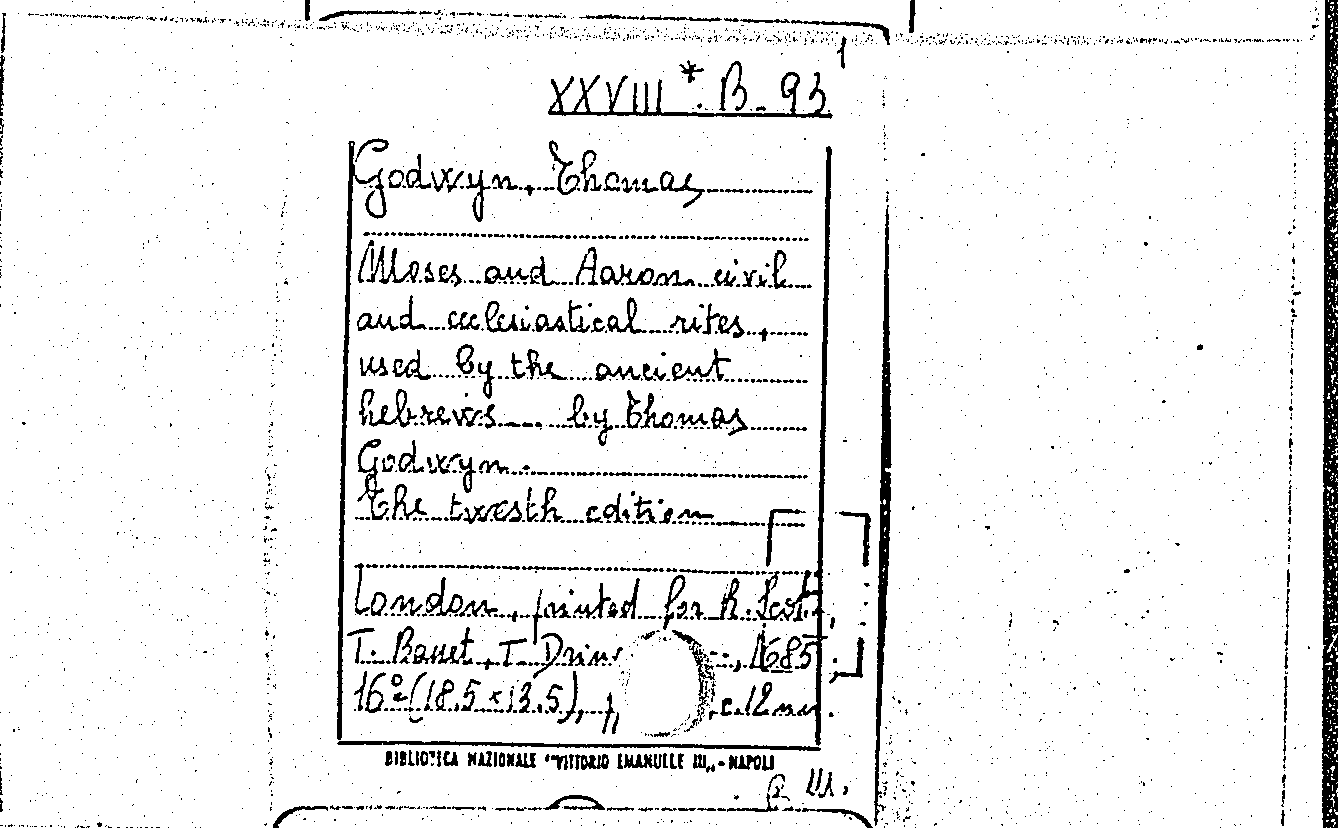 XXVIII*. B. 93
Godwyn, Thomas
Moses and Aaron civil
and ecclesiastical rites,
used by the ancient
hebrews... by Thomas
Godwyn.
The twesth edition
London, printed for R. Scot,
T. Basset, T. 1685,
16° (18.5 x 13.5), c. 12 nn.
BIBLIOTECA NAZIONALE "VITTORIO EMANUELE III" - NAPOLI